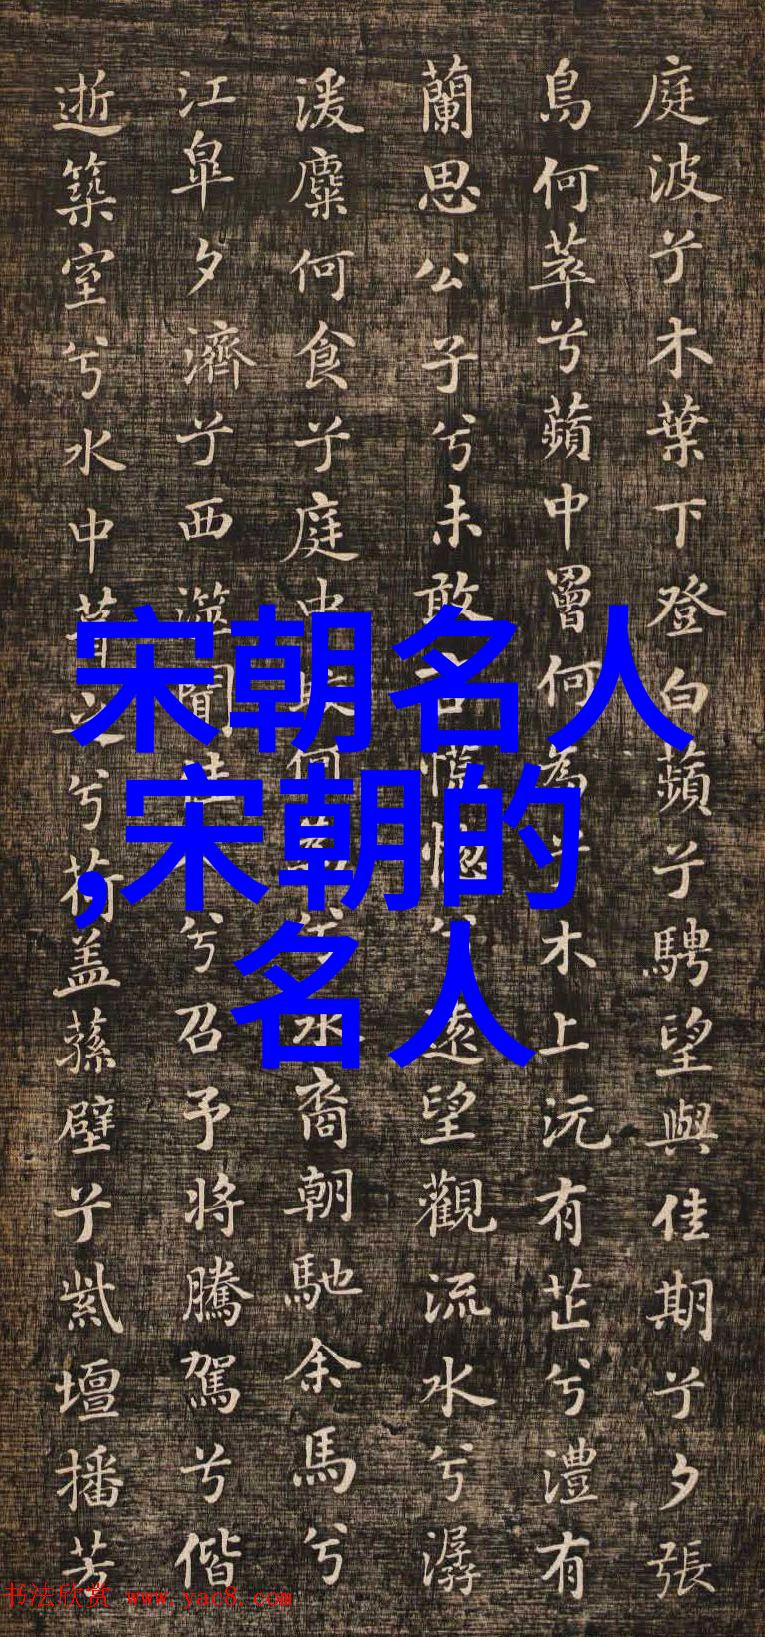 庭波兮木葉下登白蘋兮騁望與佳期兮夕張
鳥何萃兮蘋中罾何為兮木上沅有芷兮澧有
蘭思公子兮未敢言慌惚兮遠望觀流水兮潺
湲麋何食兮庭中蛟何為兮水裔朝馳余馬兮
江皋夕濟兮西澨聞佳兮召予將騰駕兮偕
逝築室兮水中葺之兮荷盖蓀壁兮紫壇播芳
宋朝名人
,宋朝的
名人
书法欣赏 www.yac8.com